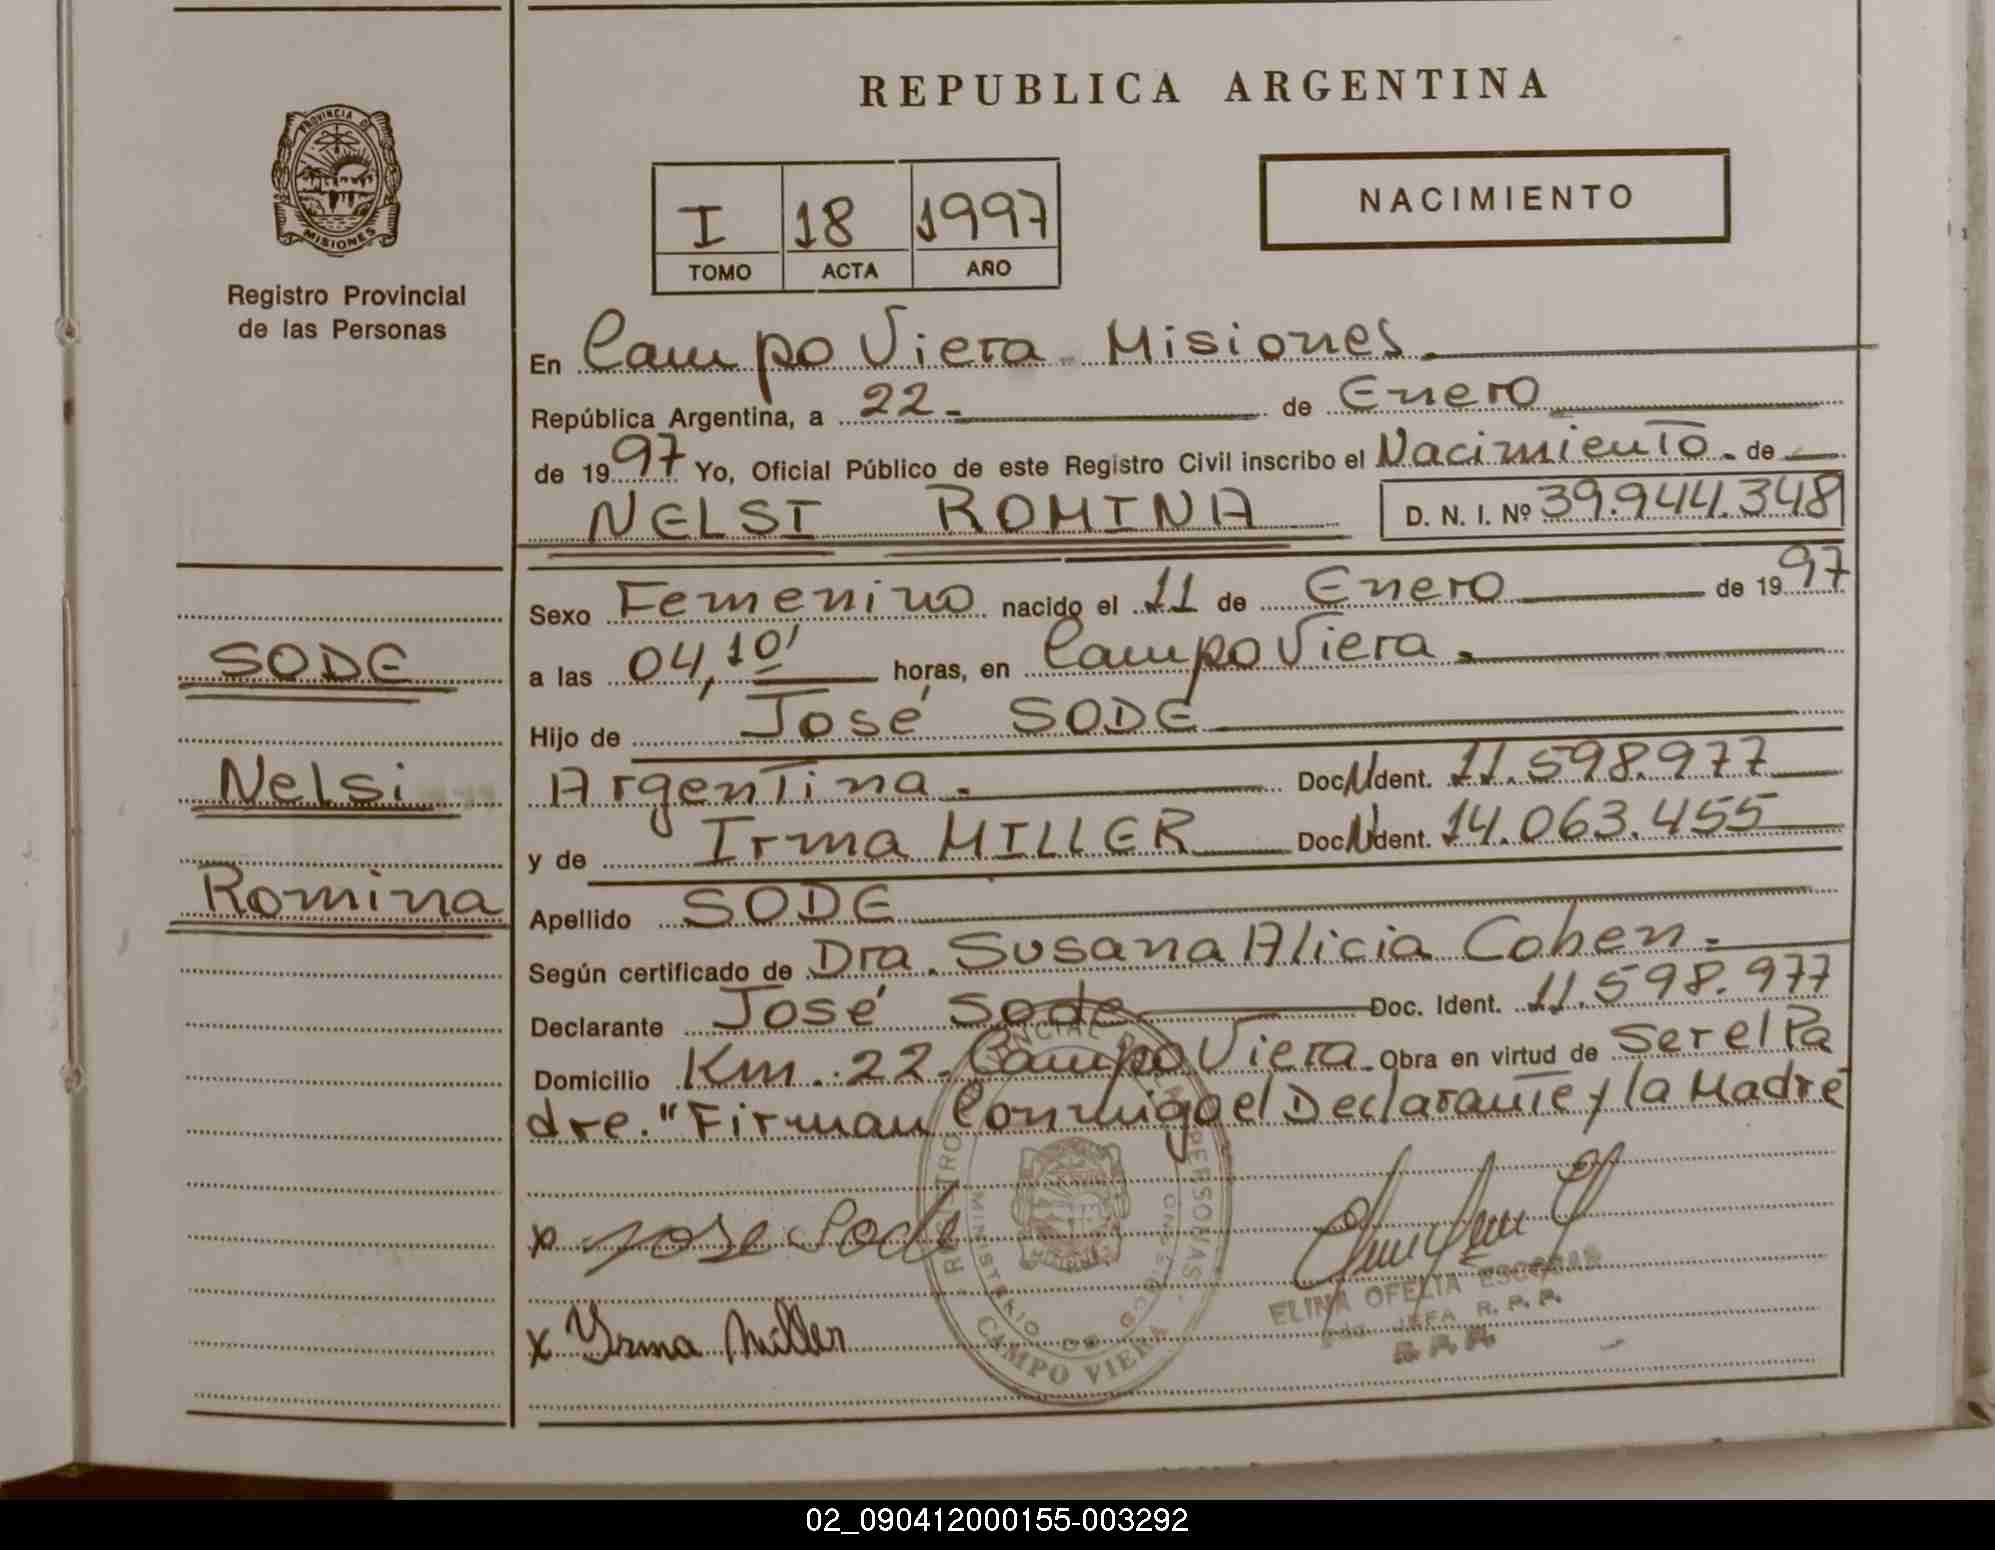 REPUBLICA ARGENTINA
PROVINCIA DE
MISIONES
Registro Provincial
de las Personas
NACIMIENTO
I 18 1997
TOMO ACTA AÑO
En Campo Viera Misiones.
República Argentina, a 22 de Enero
de 1997 Yo, Oficial Público de este Registro Civil inscribo el Nacimiento de
NELSI ROMINA D. N. I. Nº 39.944.348
Sexo Femenino nacido el 11 de Enero de 1997
SODE
a las 04,10' horas, en Campo Viera.
Hijo de José SODE
Nelsi
Argentina. Doc N Ident. 11.598.977
y de Irma MILLER Doc N Ident. 14.063.455
Romina
Apellido SODE
Según certificado de Dra. Susana Alicia Cohen.
Declarante José Sode Doc. Ident. 11.598.977
Domicilio Km. 22. Campo Viera. Obra en virtud de Ser el Pa
dre. "Firman Conmigo el Declarante y la Madre
x Jose Sode
ELINA OFELIA ESCOBAR
JEFA R. P. P.
x Yrma Miller
CAMPO VIERA
02_090412000155-003292